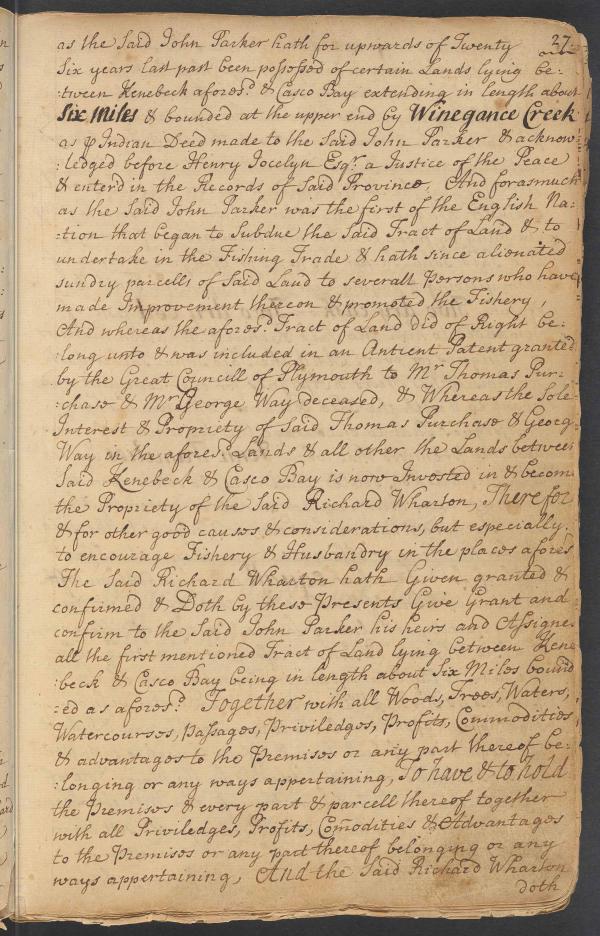 27
as the Said John Parker hath for upwards of Twenty
Six years last past been possessed of certain Lands lying be:
:tween Kenebeck afores.d & Casco Bay extending in length about
Six Miles & bounded at the upper end by Winegance Creek
as ℘ Indian Deed made to the Said John Parker & acknow:
:ledged before Henry Jocelyn Esqr. a Justice of the Peace
& enterd in the Records of Said Province, And forasmuch
as the Said John Parker was the first of the English Na:
:tion that began to Subdue the Said Tract of Land & to
undertake in the Fishing Trade & hath since alienated
sundry parcells of Said Land to severall Persons who have
made Improvement thereon & promoted the Fishery,
And whereas the afores.d Tract of Land did of Right be:
:long unto & was included in an Antient Patent granted
by the Great Councill of Plymouth to Mr. Thomas Pur:
:chase & Mr George Way deceased, & Whereas the Sole
Interest & Propriety of Said Thomas Purchase & Georg
Way in the afores.d Lands & all other the Lands between
Said Kenebeck & Casco Bay is now Invested in & become
the Propriety of the Said Richard Wharton, Therefor
& for other good causes & considerations, but especially
to encourage Fishery & Husbandry in the places afores
The Said Richard Wharton hath Given granted &
confirmed & Doth by these Presents Give Grant and
confirm to the Said John Parker his heirs and Assignes
all the first mentioned Tract of Land lying between Kene
:beck & Casco Bay being in length about Six Miles bound
:ed as afores.d Together with all Woods, Trees, Waters,
Watercourses, Passages, Priviledges, Profits, Commodities
& advantages to the Premises or any part thereof be:
:longing or any ways appertaining, To have & to hold
the Premises & every part & parcell thereof together
with all Priviledges, Profits, Com̄odities & Advantages
to the Premises or any part thereof belonging or any
ways appertaining, And the Said Richard Wharton
doth